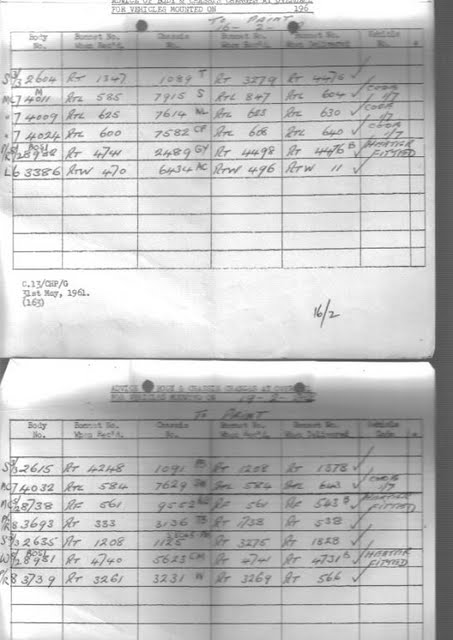 ADVICE OF BODY & CHASSIS CHANGES AT OVERHAUL
FOR VEHICLES MOUNTED ON 196
TO PAINT
16-2-
Body No. Bonnet No. When Rec'd. Chassis No. Bonnet No. When Rec'd. Bonnet No. When Delivered Vehicle Code *
S3/3 2604 RT 1347 1089 T RT 3279 RT 4476 ✓
RTL 585 7915 S RTL 847 RTL 604 ✓ 1/7
" 7 4009 RTL 625 7614 RTL 623 RTL 630 ✓ 1/7
" 7 4024 RTL 600 7582 CF RTL 608 RTL 640 ✓ 1/7
RT 4741 2489 GY RT 4498 RT 4476 B ✓ HEATER FITTED
L6 3386 RTW 470 6434 AC RTW 496 RTW 11 ✓
C.13/CHP/G
31st May, 1961.
(163)
16/2
ADVICE OF BODY & CHASSIS CHANGES AT OVERHAUL
FOR VEHICLES MOUNTED ON 19-2-
TO PAINT
Body No. Bonnet No. When Rec'd. Chassis No. Bonnet No. When Rec'd. Bonnet No. When Delivered Vehicle Code *
S3/3 2615 RT 4248 1091 RT 1208 RT 1378 ✓
7 4032 RTL 584 7629 RTL 584 RTL 643 ✓ 1/7
8738 RF 561 9552 RF 561 RF 543 B ✓ HEATER FITTED
8 3693 RT 333 3136 RT 1738 RT 538 ✓
2635 RT 1208 1125 RT 3275 RT 1828 ✓
8981 RT 4740 5623 CM RT 4741 RT 4731 B ✓ HEATER FITTED
8 3739 RT 3261 3231 W RT 3269 RT 566 ✓